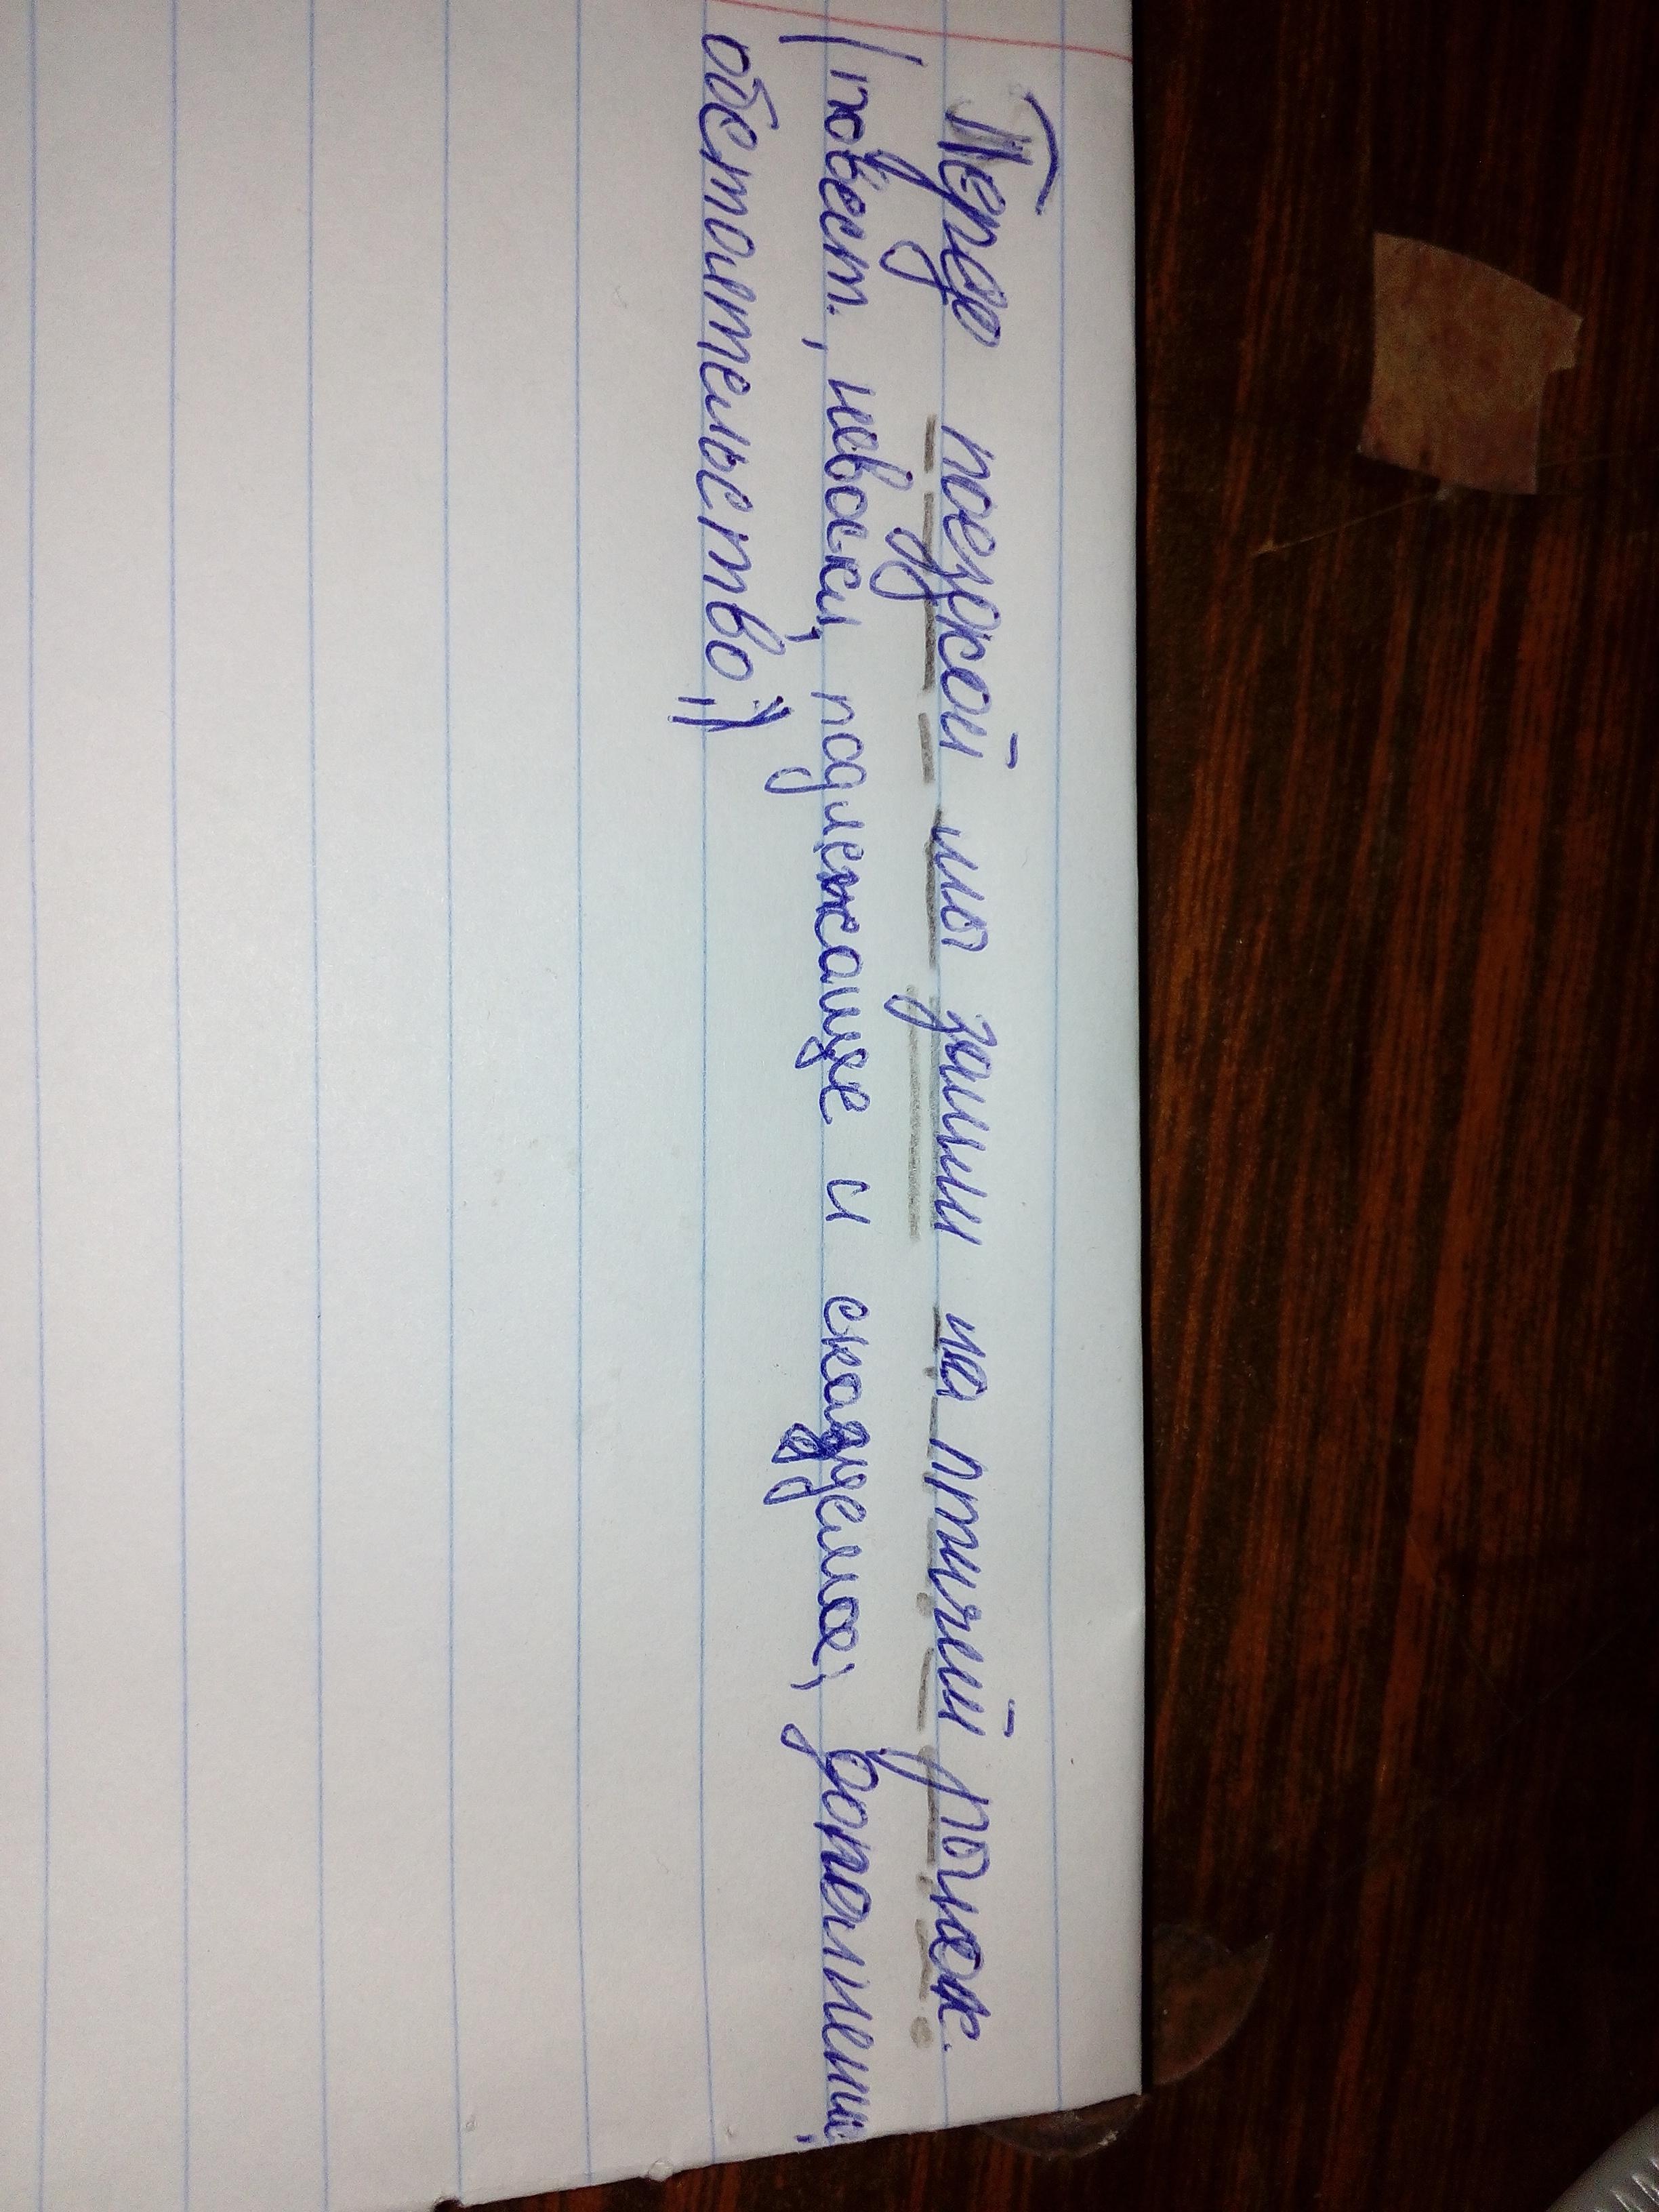 Перед поездкой мы зашли на птичий рынок.
(повест., невоскл., подлежащее и сказуемое, дополнении,
обстоятельство,)